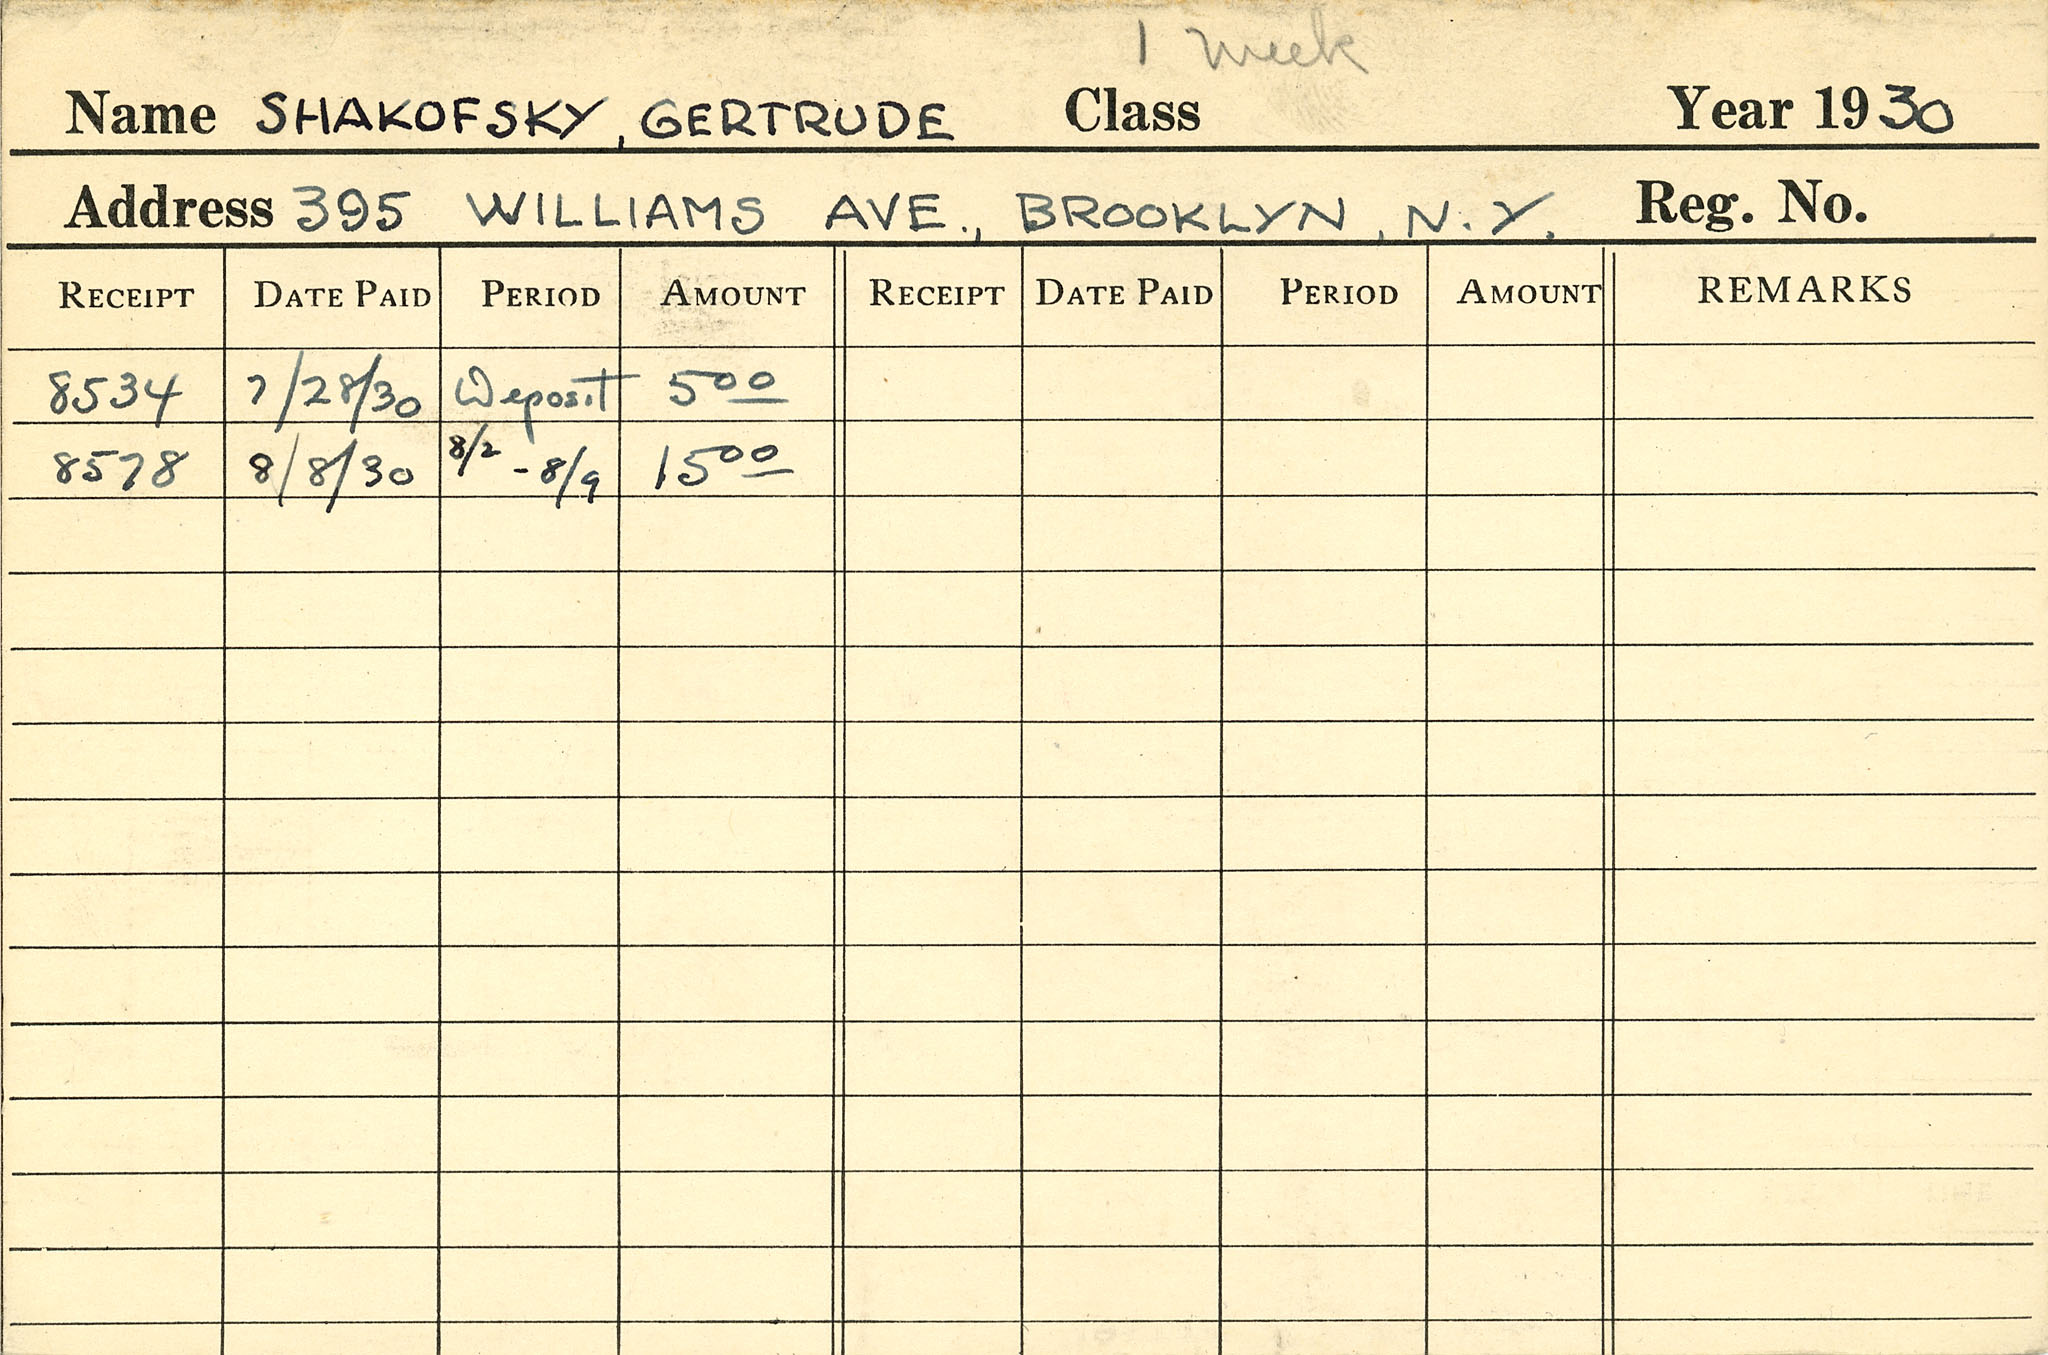 1 week
Name SHAKOFSKY, GERTRUDE Class Year 1930
Address 395 WILLIAMS AVE., BROOKLYN, N.Y. Reg. No.
RECEIPT DATE PAID PERIOD AMOUNT RECEIPT DATE PAID PERIOD AMOUNT REMARKS
8534 7/28/30 Deposit 5 00
8578 8/8/30 8/2 - 8/9 15 00